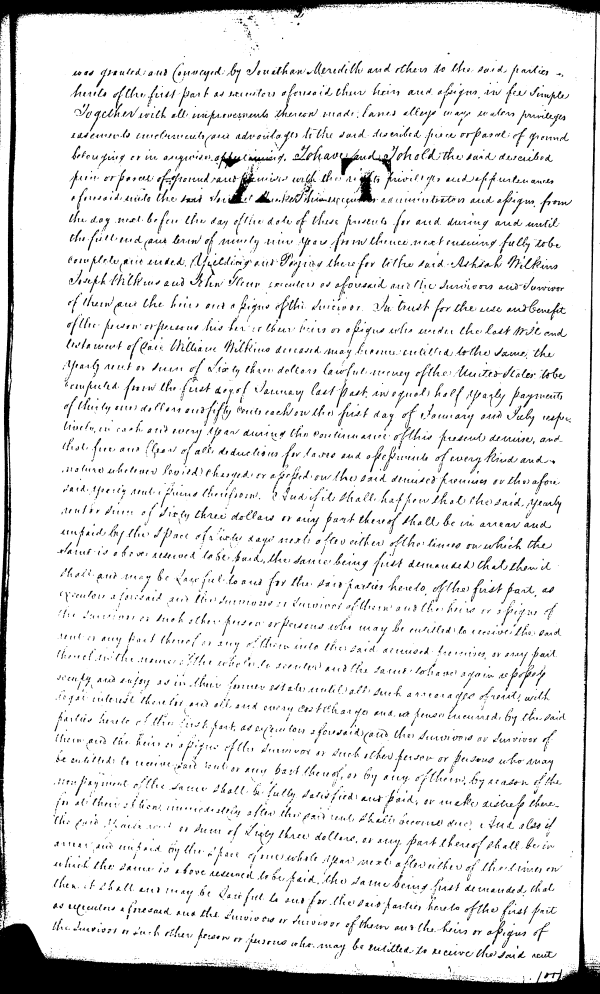 was granted and Conveyed by Jonathan Meredith and others to the said parties
hereto of the first part as executors aforesaid their heirs and assigns, in fee Simple
Together with all improvements thereon made, lanes alleys ways waters privileges
easements emoluments and advantages to the said described piece or parcel of ground
belonging or in anywise appertaining. To have and To hold the said described
piece or parcel of ground and premises with the rights privileges and appurtenances
aforesaid unto the said his executors administrators and assigns from
the day next before the day of the date of these presents for and during and until
the full end and term of ninety nine years from thence next ensuing fully to be
complete and ended, Yielding and Paying therefor to the said Wilkins
Joseph Wilkins and John executors as aforesaid and the survivors and Survivor
of them and the heirs and assigns of the Survivor. In trust for the use and benefit
of the person or persons his her or their heirs or assigns who under the last Will and
testament of said William Wilkins deceased may become entitled to the same, the
yearly rent or sum of Sixty three dollars lawful money of the United States to be
computed from the first day of January last past, in equal half yearly payments
of thirty one dollars and fifty cents each on the first day of January and July respec
tively, in each and every year during the continuance of this present demise, and
that free and Clear of all deductions for taxes and assessments of every kind and
nature whatever levied charged or assessed on the said demised premises or the afore
said yearly rent issuing therefrom. And if it shall happen that the said, yearly
rent or sum of Sixty three dollars or any part thereof shall be in arrear and
unpaid by the Space of Sixty days next after either of the times on which the
same is above reserved to be paid, the same being first demanded that then it
shall and may be Lawful to and for the said parties hereto, of the first part, as
executors aforesaid and the survivors or survivor of them and the heirs or assigns of
the survivor or such other person or persons who may be entitled to receive the said
rent or any part thereof or any of them into the said demised premises, or any part
thereof in the name of the whole to reenter and the same to have again repossess
reenjoy and enjoy as in their former estate until all such arrearages of rent, with
legal interest thereon and all and every cost charge and expense incurred by the said
parties hereto of the first part, as executors aforesaid and the survivors or survivor of
them and the heirs or assigns of the survivor or such other person or persons who may
be entitled to receive said rent or any part thereof, or by any of them, by reason of the
nonpayment of the same shall be fully satisfied and paid, or make distress there
for at their option immediately after the said rent shall become due. And also if
the said yearly rent or sum of Sixty three dollars, or any part thereof shall be in
arrear and unpaid by the Space of one whole year next after either of the times on
which the same is above reserved to be paid, the same being first demanded, that
then it shall and may be Lawful to and for the said parties hereto of the first part
as executors aforesaid and the survivors or survivor of them and the heirs or assigns of
the Survivor or such other person or persons who may be entitled to receive the said rent